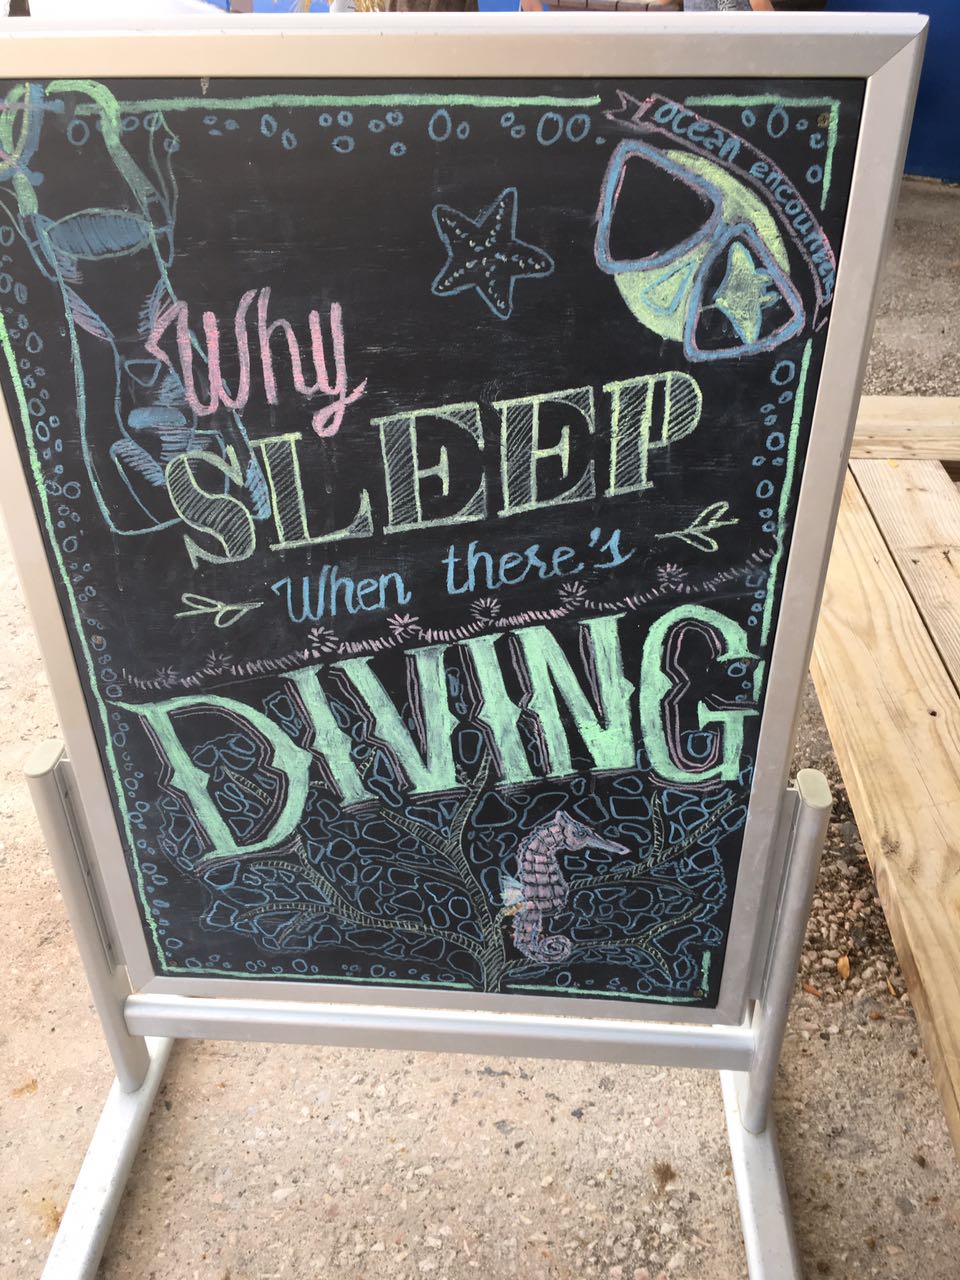 ocean encounters
Why
SLEEP
When there's
DIVING